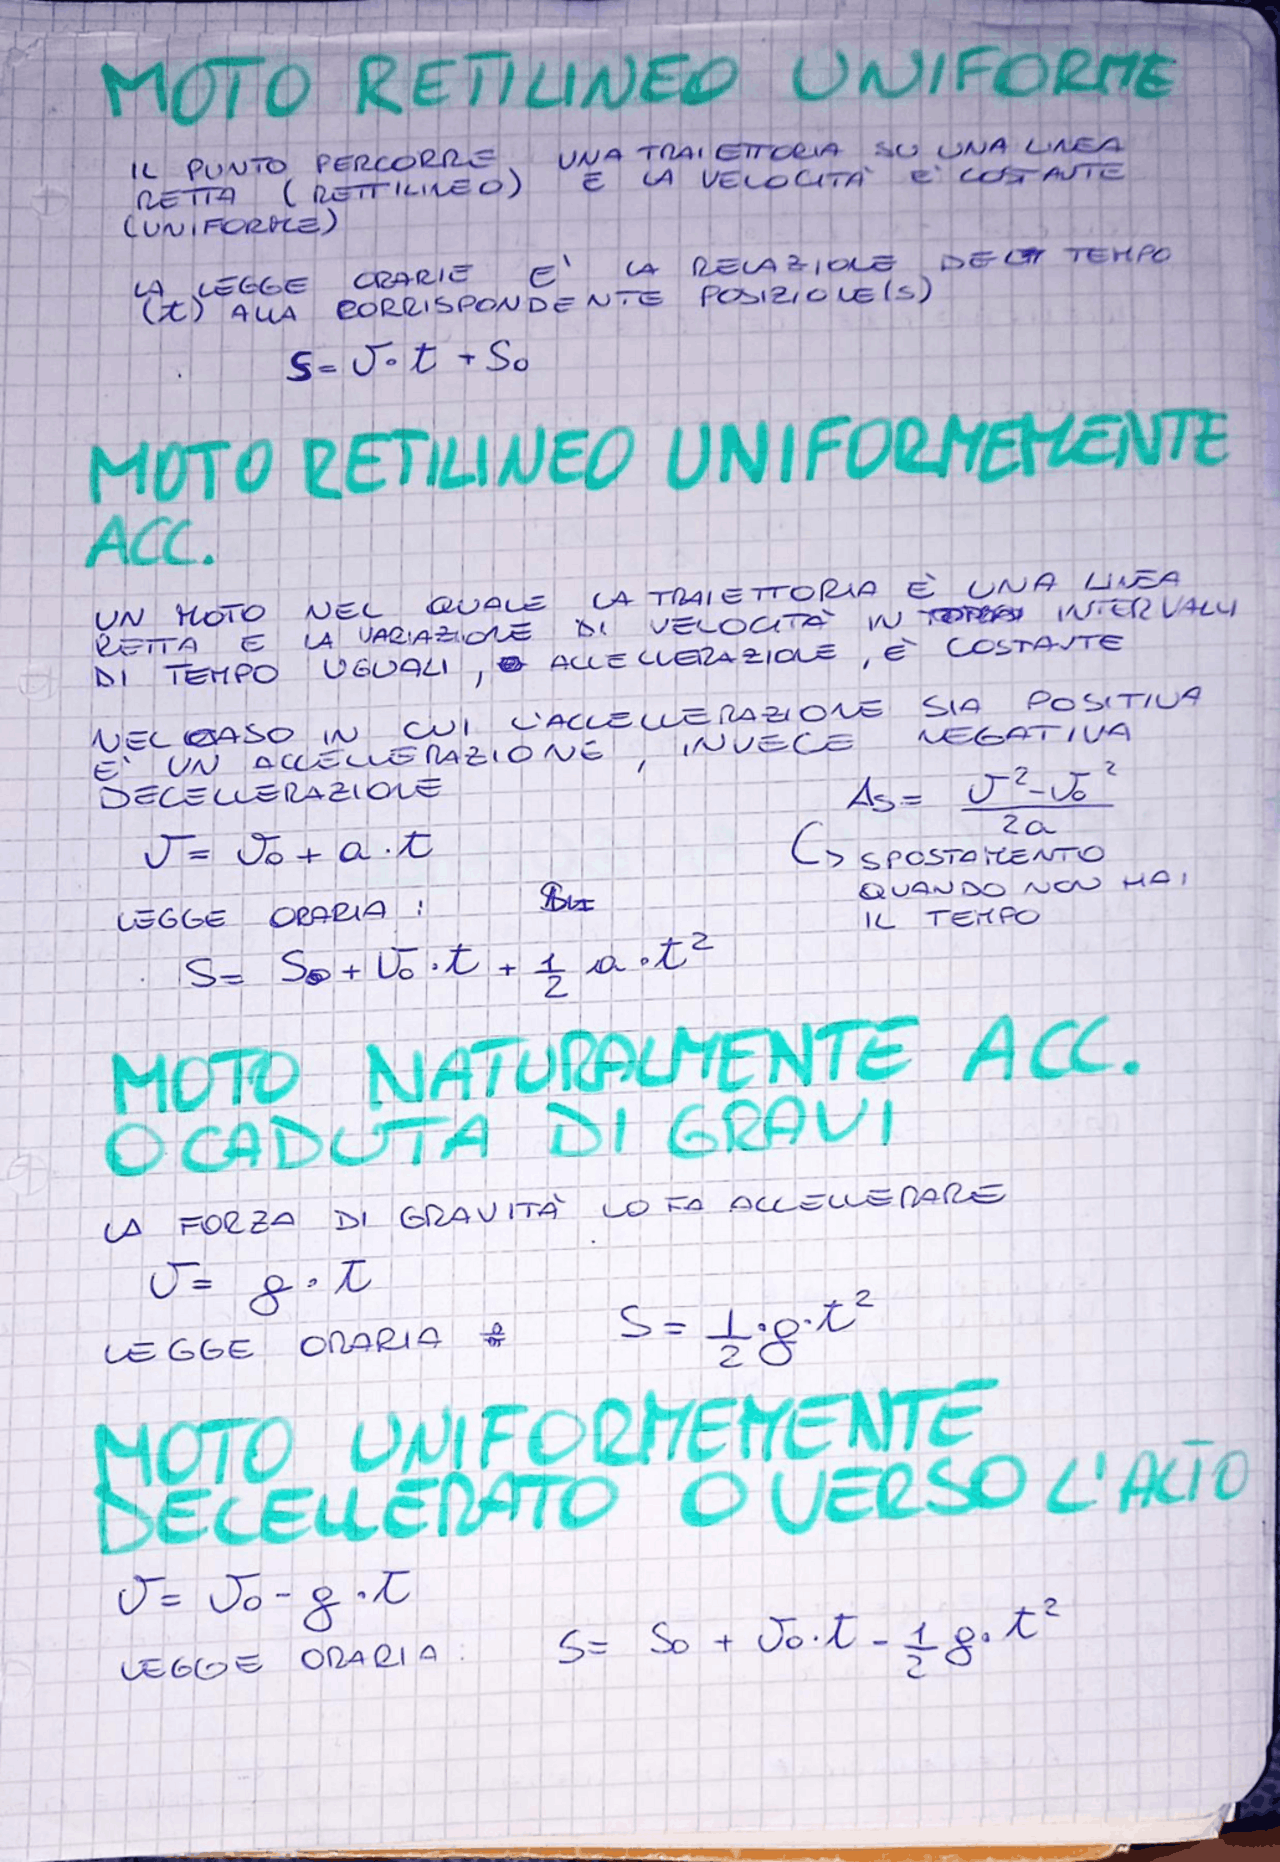 MOTO RETILINEO UNIFORME
IL PUNTO PERCORRE UNA TRAIETTORIA SU UNA LINEA
RETTA (RETTILINEO) E LA VELOCITÀ E' COSTANTE
(UNIFORME)
LA LEGGE ORARIE E' LA RELAZIONE DEL TEMPO
(t) ALLA CORRISPONDENTE POSIZIONE(S)
S = v · t + S₀
MOTO RETILINEO UNIFORMEMENTE
ACC.
UN MOTO NEL QUALE LA TRAIETTORIA È UNA LINEA
RETTA E LA VARIAZIONE DI VELOCITÀ IN INTERVALLI
DI TEMPO UGUALI, ACCELLERAZIONE, È COSTANTE
NEL CASO IN CUI L'ACCELLERAZIONE SIA POSITIVA
E' UN ACCELLERAZIONE, INVECE NEGATIVA
DECELLERAZIONE
Δs = v² - v₀² / 2a
SPOSTAMENTO
QUANDO NON HAI
IL TEMPO
v = v₀ + a · t
LEGGE ORARIA :
S = S₀ + v₀ · t + 1/2 a · t²
MOTO NATURALMENTE ACC.
O CADUTA DI GRAVI
LA FORZA DI GRAVITÀ LO FA ACCELLERARE
v = g · t
LEGGE ORARIA : S = 1/2 · g · t²
MOTO UNIFORMEMENTE
DECELLERATO O VERSO L'ALTO
v = v₀ - g · t
LEGGE ORARIA : S = S₀ + v₀ · t - 1/2 g · t²